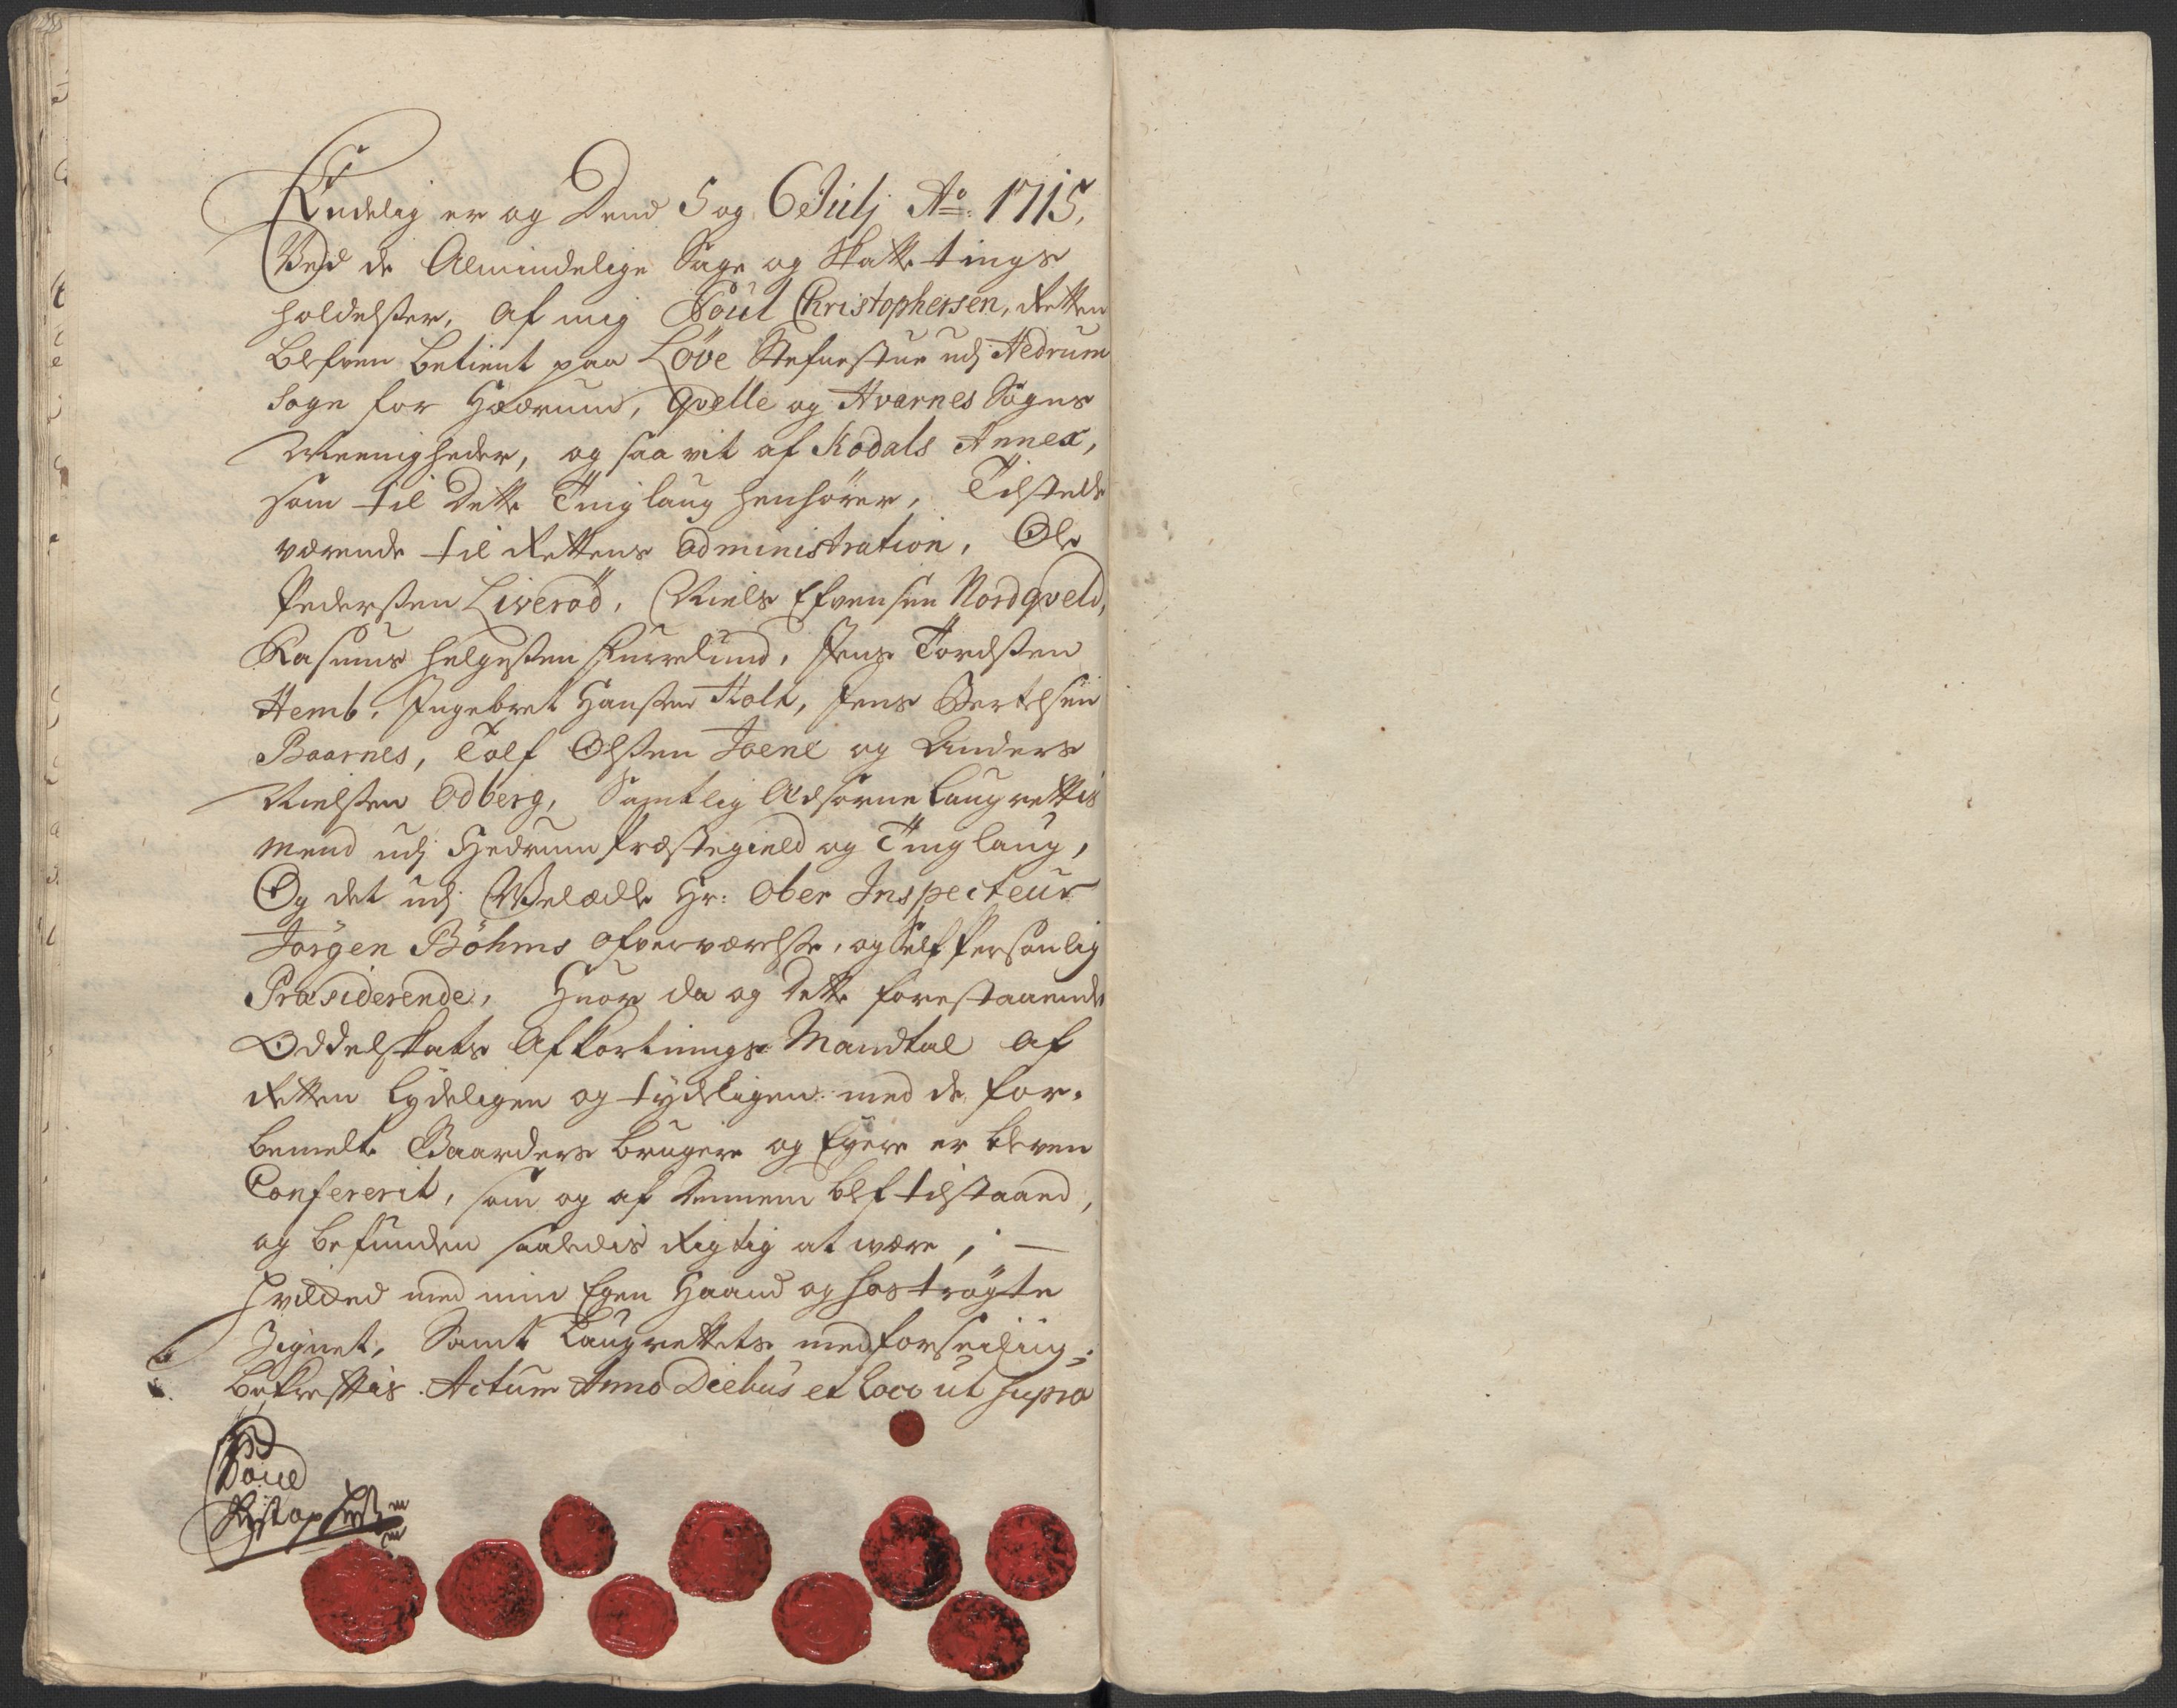 Endelig er og Dend 5 og 6 Julj Ao. 1715,
Ved de Almindelige Sage og Skatte tings
holdelser, af mig Poul Christophersen, Retten
blefven betient paa Löve Stefnestue udj Hedrum
Sogn for Hedrum, Qvelle og Hvarnes Sognes
Meenigheder, og saa vit af Kodals Annex,
som til dette Tinglaug henhörer, Tilstede
værende til Rettens Administration, Ole
Pedersen Liveröd, Niels Efvensen Nordqveld,
Rasmus Helgesen Furrelund, Jens Tordsen
Hemb, Ingebret Hansen Holt, Jens Bertelsen
Baarnes, Tolf Olsen Joene og Anders
Nielsen Odberg, Samtlig Edsorne Laugrettis
mend udj Hedrum Præstegield og Tinglaug,
Og det udj Velædle Hr: Ober Inspecteur
Jörgen Böhms Ofververelse, og Self Personlig
Præsiderende, Huor da og dette forestaaende
Oddelskats Afkortnings Mandtal af
Retten lydeligen og tydeligen med de for.
bemelte Gaarders brugere og Eyere er bleven
Confererit, som og af dennem blef tilstaaed,
og befunden saaledis Rigtig at være, ; —
Hvilded med min Egen Haand og hoströgte
Zignet, Samt Laugrettets medforseiling,
bekreftis. Actum Anno Diebus et Loco ut supra
Poul
Christophersen